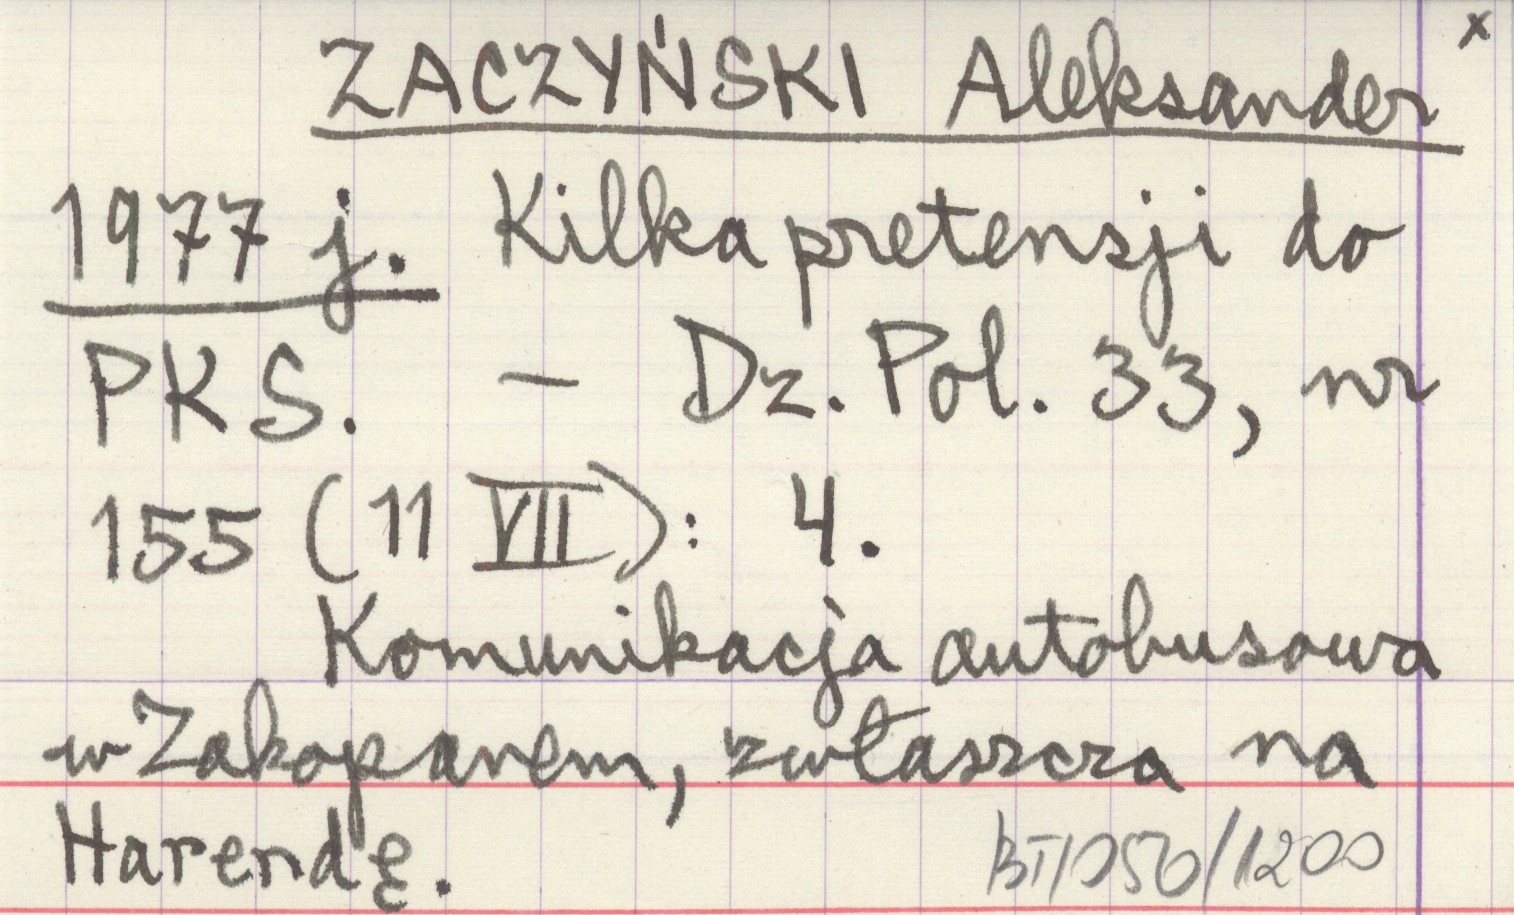 x
ZACZYŃSKI Aleksander
1977 j. Kilka pretensji do
PKS. – Dz. Pol. 33, nr
155 (11 VII): 4.
Komunikacja autobusowa
w Zakopanem, zwłaszcza na
Harendę.
/1200